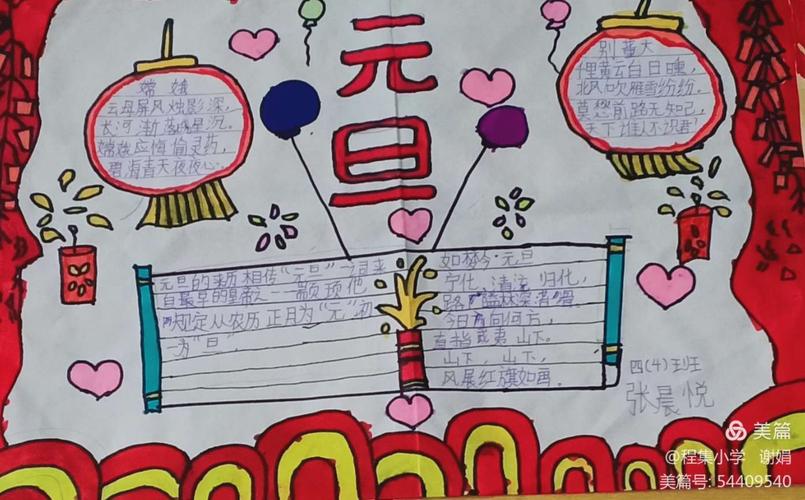 元旦
嫦娥
云母屏风烛影深,
长河渐落晓星沉。
嫦娥应悔偷灵药,
碧海青天夜夜心.
别董大
里黄云白日曛,
北风吹雁雪纷纷。
莫愁前路无知己,
天下谁人不识君!
元旦的来历相传“元旦”一词来
自最早的皇帝之一——颛顼他
规定从农历正月为“元”初
一为“旦”.
如梦令·元旦
宁化、清流、归化,
路隘林深苔滑.
今日向何方,
直指武夷山下。
山下,山下,
风展红旗如画.
四(4)班
张晨悦
美篇
@程集小学 谢娟
美篇号: 54409540